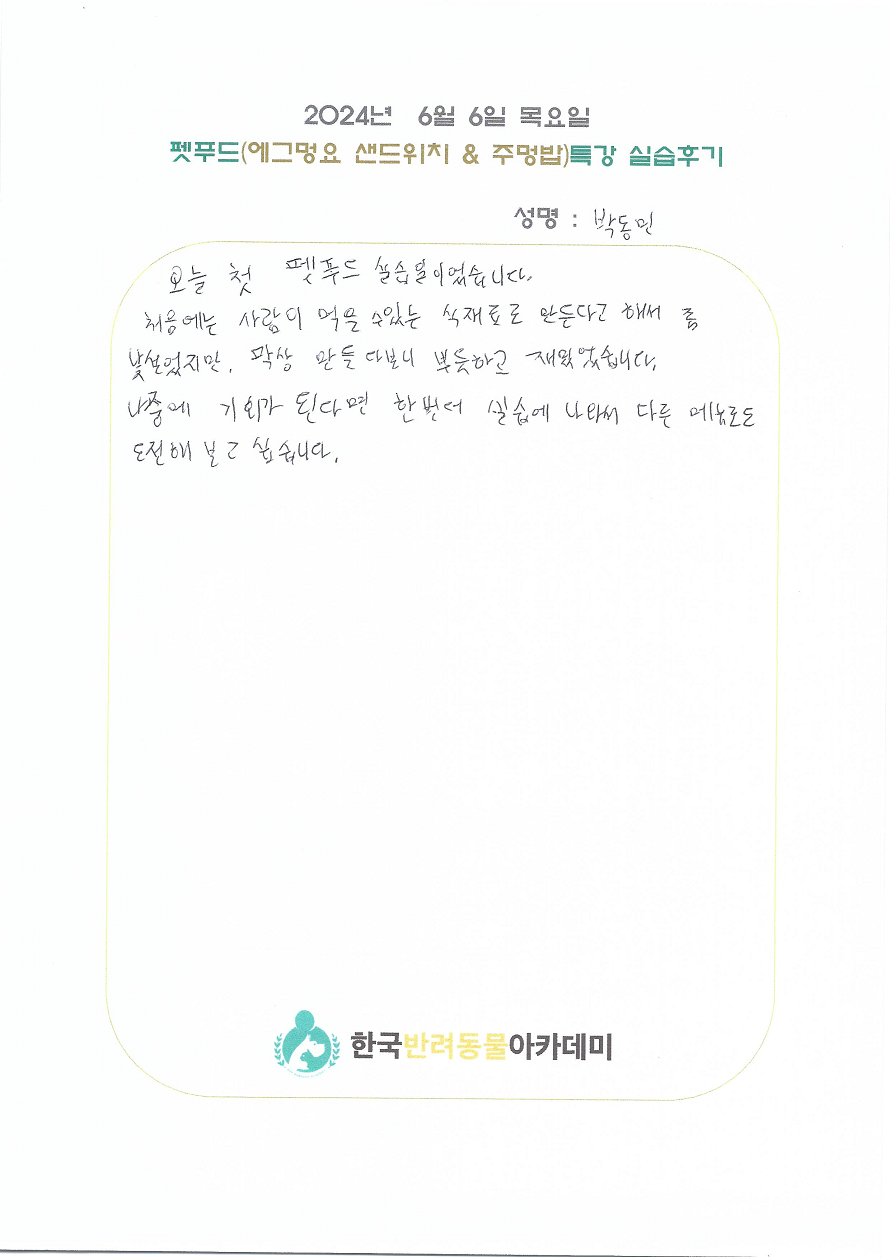 2024년 6월 6일 목요일
펫푸드(에그멍요 샌드위치 & 주멍밥)특강 실습후기
성명 : 박동민
오늘 첫 펫푸드 실습일이었습니다.
처음에는 사람이 먹을 수있는 식재료로 만든다고 해서 좀
낯설었지만, 막상 만들다보니 뿌듯하고 재밌었습니다.
나중에 기회가 된다면 한번더 실습에 나와서 다른 메뉴로도
도전해 보고 싶습니다.
한국반려동물아카데미